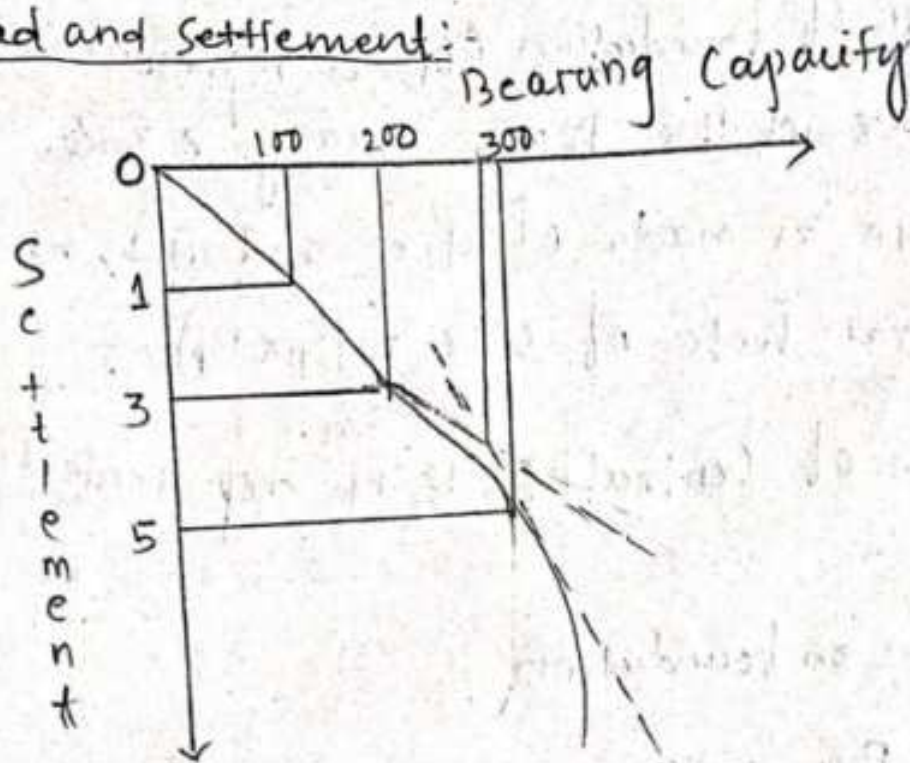 ad and Settlement:-
Bearing Capacity
100 200 300
0
1
3
5
Settlement